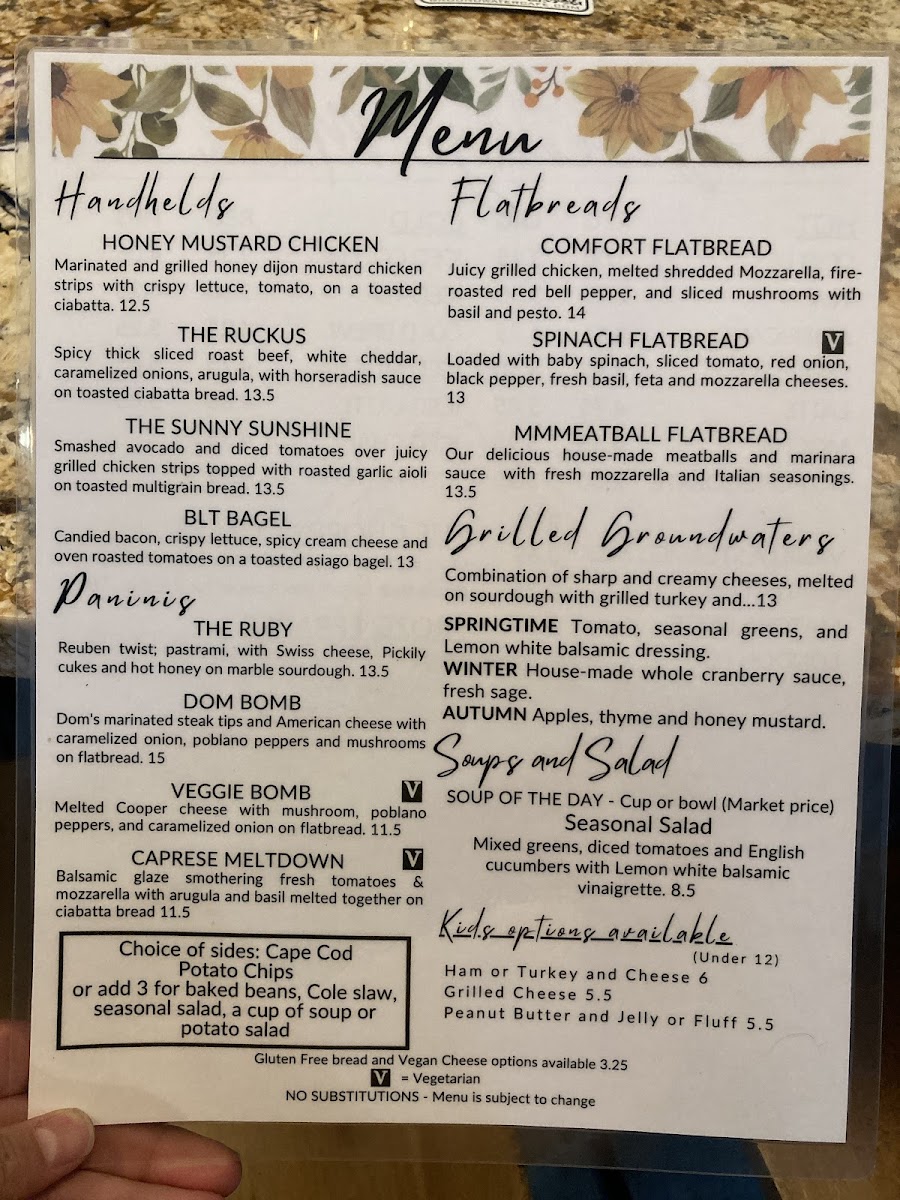 Menu
Handhelds
HONEY MUSTARD CHICKEN
Marinated and grilled honey dijon mustard chicken
strips with crispy lettuce, tomato, on a toasted
ciabatta. 12.5
THE RUCKUS
Spicy thick sliced roast beef, white cheddar,
caramelized onions, arugula, with horseradish sauce
on toasted ciabatta bread. 13.5
THE SUNNY SUNSHINE
Smashed avocado and diced tomatoes over juicy
grilled chicken strips topped with roasted garlic aioli
on toasted multigrain bread. 13.5
BLT BAGEL
Candied bacon, crispy lettuce, spicy cream cheese and
oven roasted tomatoes on a toasted asiago bagel. 13
Paninis
THE RUBY
Reuben twist; pastrami, with Swiss cheese, Pickily
cukes and hot honey on marble sourdough. 13.5
DOM BOMB
Dom's marinated steak tips and American cheese with
caramelized onion, poblano peppers and mushrooms
on flatbread. 15
VEGGIE BOMB V
Melted Cooper cheese with mushroom, poblano
peppers, and caramelized onion on flatbread. 11.5
CAPRESE MELTDOWN V
Balsamic glaze smothering fresh tomatoes &
mozzarella with arugula and basil melted together on
ciabatta bread 11.5
Choice of sides: Cape Cod
Potato Chips
or add 3 for baked beans, Cole slaw,
seasonal salad, a cup of soup or
potato salad
Flatbreads
COMFORT FLATBREAD
Juicy grilled chicken, melted shredded Mozzarella, fire-
roasted red bell pepper, and sliced mushrooms with
basil and pesto. 14
SPINACH FLATBREAD V
Loaded with baby spinach, sliced tomato, red onion,
black pepper, fresh basil, feta and mozzarella cheeses.
13
MMMEATBALL FLATBREAD
Our delicious house-made meatballs and marinara
sauce with fresh mozzarella and Italian seasonings.
13.5
Grilled Groundwaters
Combination of sharp and creamy cheeses, melted
on sourdough with grilled turkey and...13
SPRINGTIME Tomato, seasonal greens, and
Lemon white balsamic dressing.
WINTER House-made whole cranberry sauce,
fresh sage.
AUTUMN Apples, thyme and honey mustard.
Soups and Salad
SOUP OF THE DAY - Cup or bowl (Market price)
Seasonal Salad
Mixed greens, diced tomatoes and English
cucumbers with Lemon white balsamic
vinaigrette. 8.5
Kids options available
(Under 12)
Ham or Turkey and Cheese 6
Grilled Cheese 5.5
Peanut Butter and Jelly or Fluff 5.5
Gluten Free bread and Vegan Cheese options available 3.25
V = Vegetarian
NO SUBSTITUTIONS - Menu is subject to change